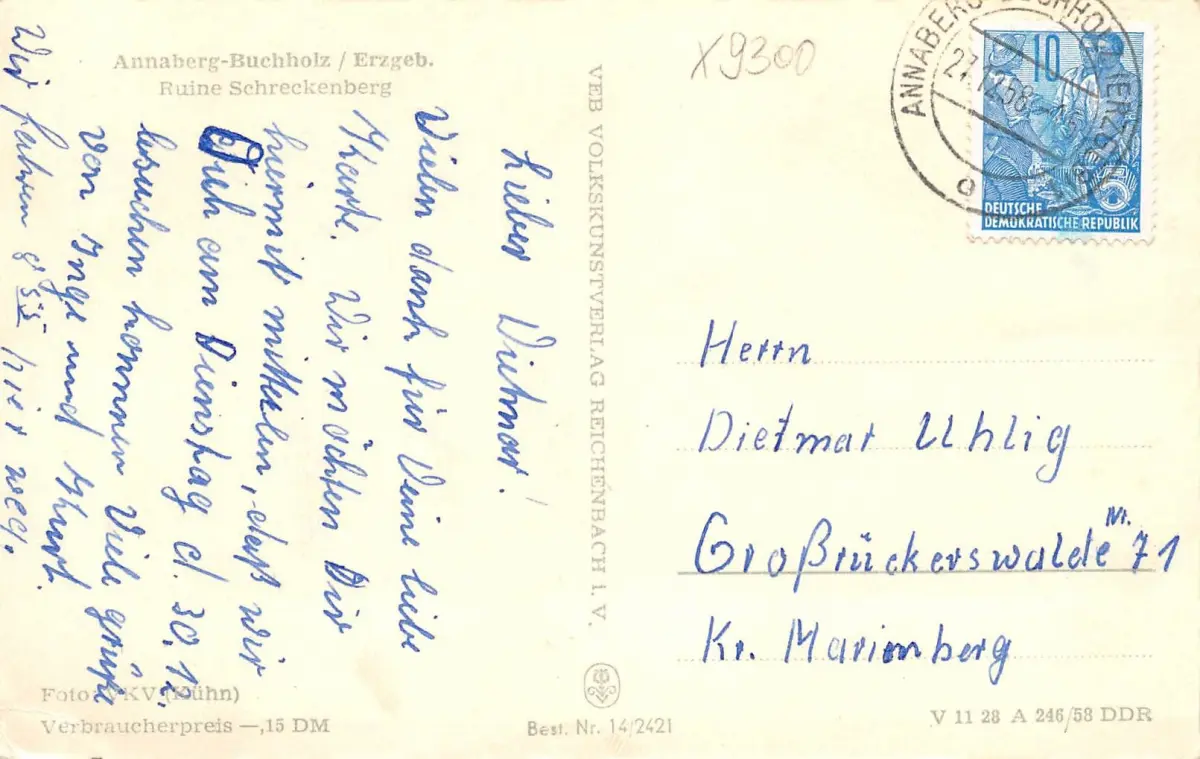 Annaberg-Buchholz / Erzgeb.
Ruine Schreckenberg
Lieber Ditmar!
Vielen dank für Deine liebe
Karte. Wir möchten Dir
hiermit mitteilen, daß wir
Dich am Dienstag d. 30.12.
besuchen kommen Viele grüße
von Inge und Kurt.
Wir fahren 8 55 hier weg.
Foto: VKV (Kühn)
Verbraucherpreis —,15 DM
VEB VOLKSKUNSTVERLAG REICHENBACH i. V.
Best. Nr. 14/2421
X9300
ANNABERG-BUCHHOLZ (ERZGEB)
27.12.58
10
5
DEUTSCHE
DEMOKRATISCHE REPUBLIK
Herrn
Dietmar Uhlig
Großrückerswalde Nr. 71
Kr. Marienberg
V 11 28 A 246/58 DDR